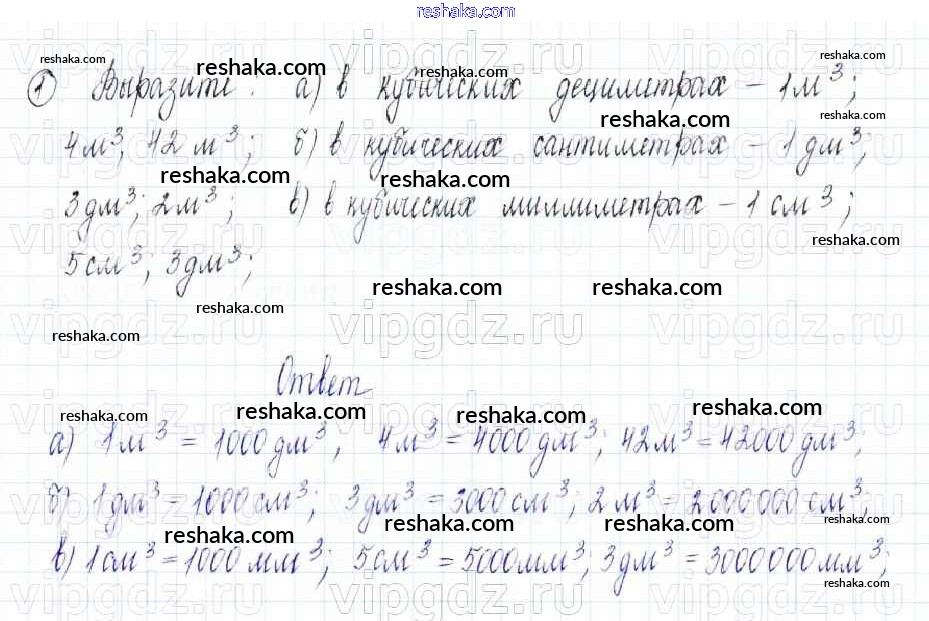 reshaka.com
① Выразите: а) в кубических дециметрах – 1м³;
4м³; 42 м³; б) в кубических сантиметрах – 1 дм³;
3 дм³; 2м³; в) в кубических миллиметрах – 1 см³;
5см³; 3дм³;
Ответ
а) 1м³ = 1000 дм³; 4м³ = 4000 дм³; 42м³ = 42000 дм³;
б) 1дм³ = 1000 см³; 3 дм³ = 3000 см³; 2 м³ = 2000 000 см³;
в) 1 см³ = 1000 мм³; 5см³ = 5000мм³; 3 дм³ = 3000000мм³;